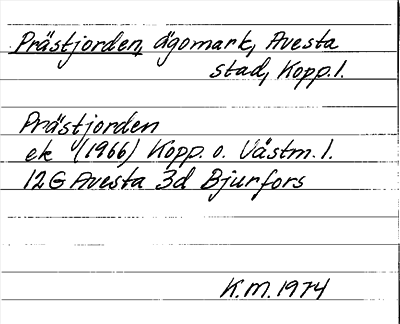 Prästjorden, ägomark, Avesta
stad, Kopp.l.
Prästjorden
ek (1966) Kopp. o. Västm. l.
12G Avesta 3d Bjurfors
K.M. 1974